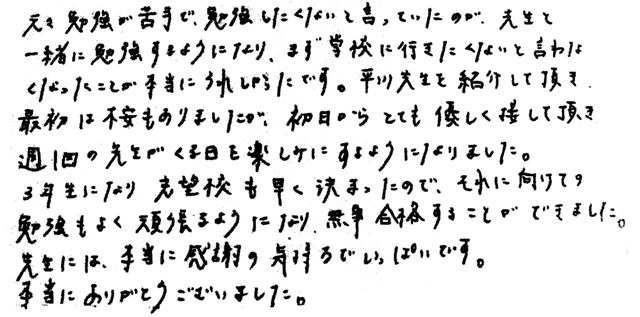 元々勉強が苦手で、勉強したくないと言っていたのが、先生と
一緒に勉強するようになり、まず学校に行きたくないと言わな
くなったことが本当にうれしかったです。平川先生を紹介して頂き
最初は不安もありましたが、初日からとても優しく接して頂き
週1回の先生がくる日を楽しみにするようになりました。
3年生になり志望校も早く決まったので、それに向けての
勉強もよく頑張るようになり、無事合格することができました。
先生には、本当に感謝の気持ちでいっぱいです。
本当にありがとうございました。